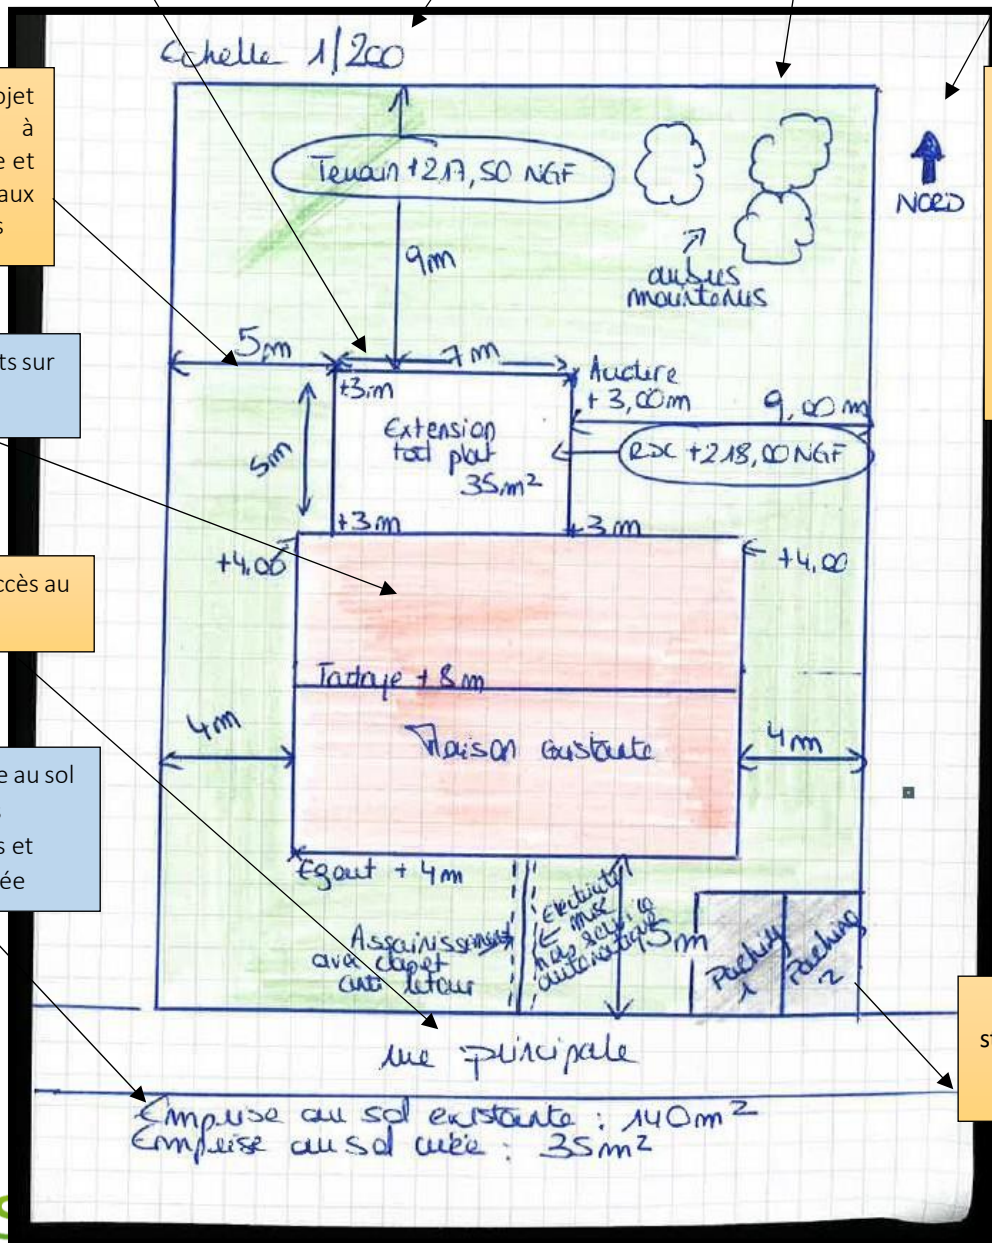 Echelle 1/200
ojet
à
e et
aux
s
Terrain +217,50 NGF
NORD
9m
arbres
maintenus
5m
7m
ts sur
+3m
Acrotère
+3,00m
9,00m
Extension
toit plat
35m²
5m
RDC +218,00 NGF
+3m
+3m
+4,00
+4,00
ccès au
Faitage +8m
4m
Maison existante
4m
e au sol
s et
ée
Egout +4m
Assainissement
avec clapet
anti retour
électricité
mise
hors service
automatique
5m
Parking
1
Parking
2
st
rue principale
Emprise au sol existante : 140m²
Emprise au sol créée : 35m²